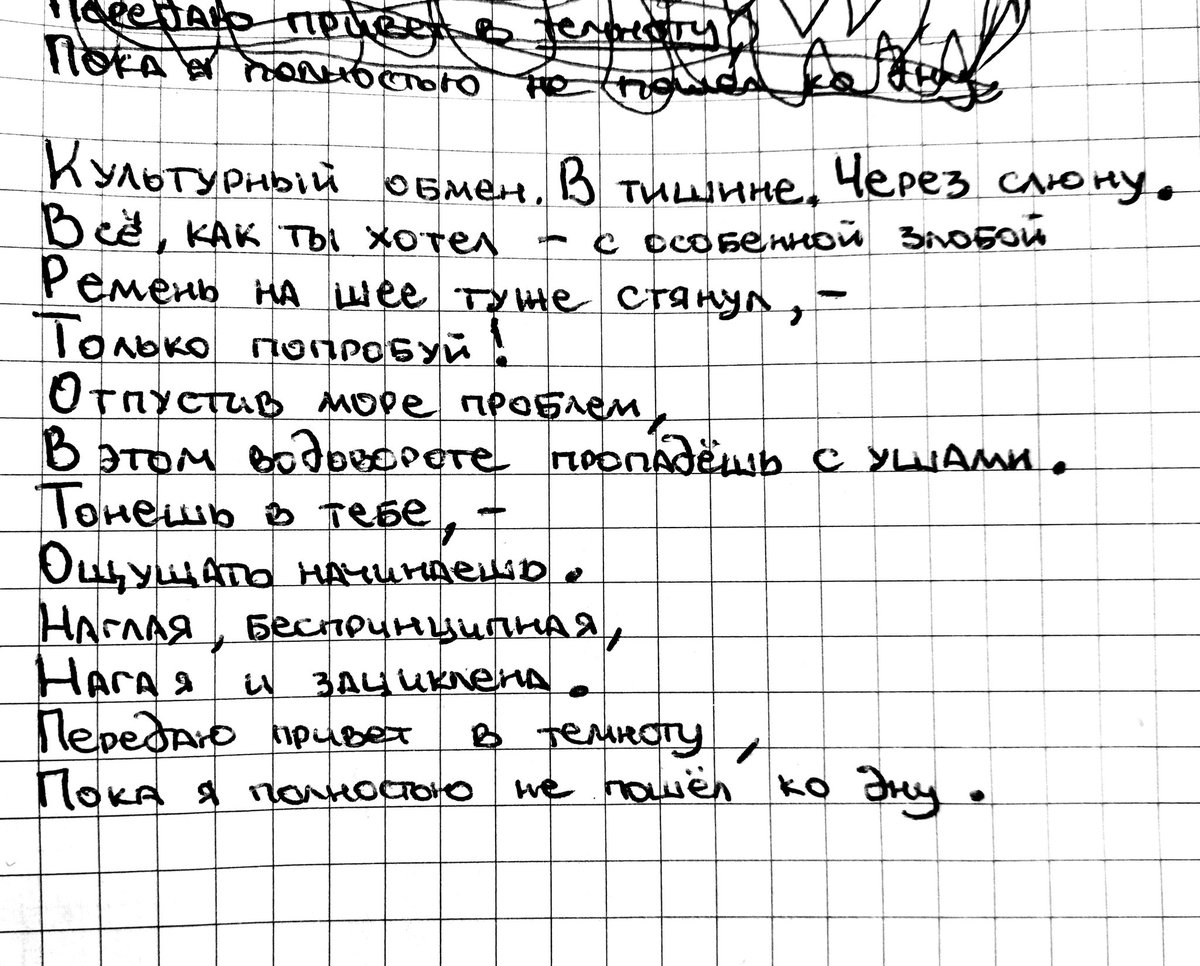 Передаю привет в темноту,
Пока я полностью не пошёл ко дну
Культурный обмен. В тишине. Через слюну.
Всё, как ты хотел – с особенной злобой
Ремень на шее туже стянул, –
Только попробуй!
Отпустив море проблем,
В этом водовороте пропадёшь с ушами.
Тонешь в тебе, –
Ощущать начинаешь.
Наглая, беспринципная,
Нагая и зациклена.
Передаю привет в темноту,
Пока я полностью не пошёл ко дну.